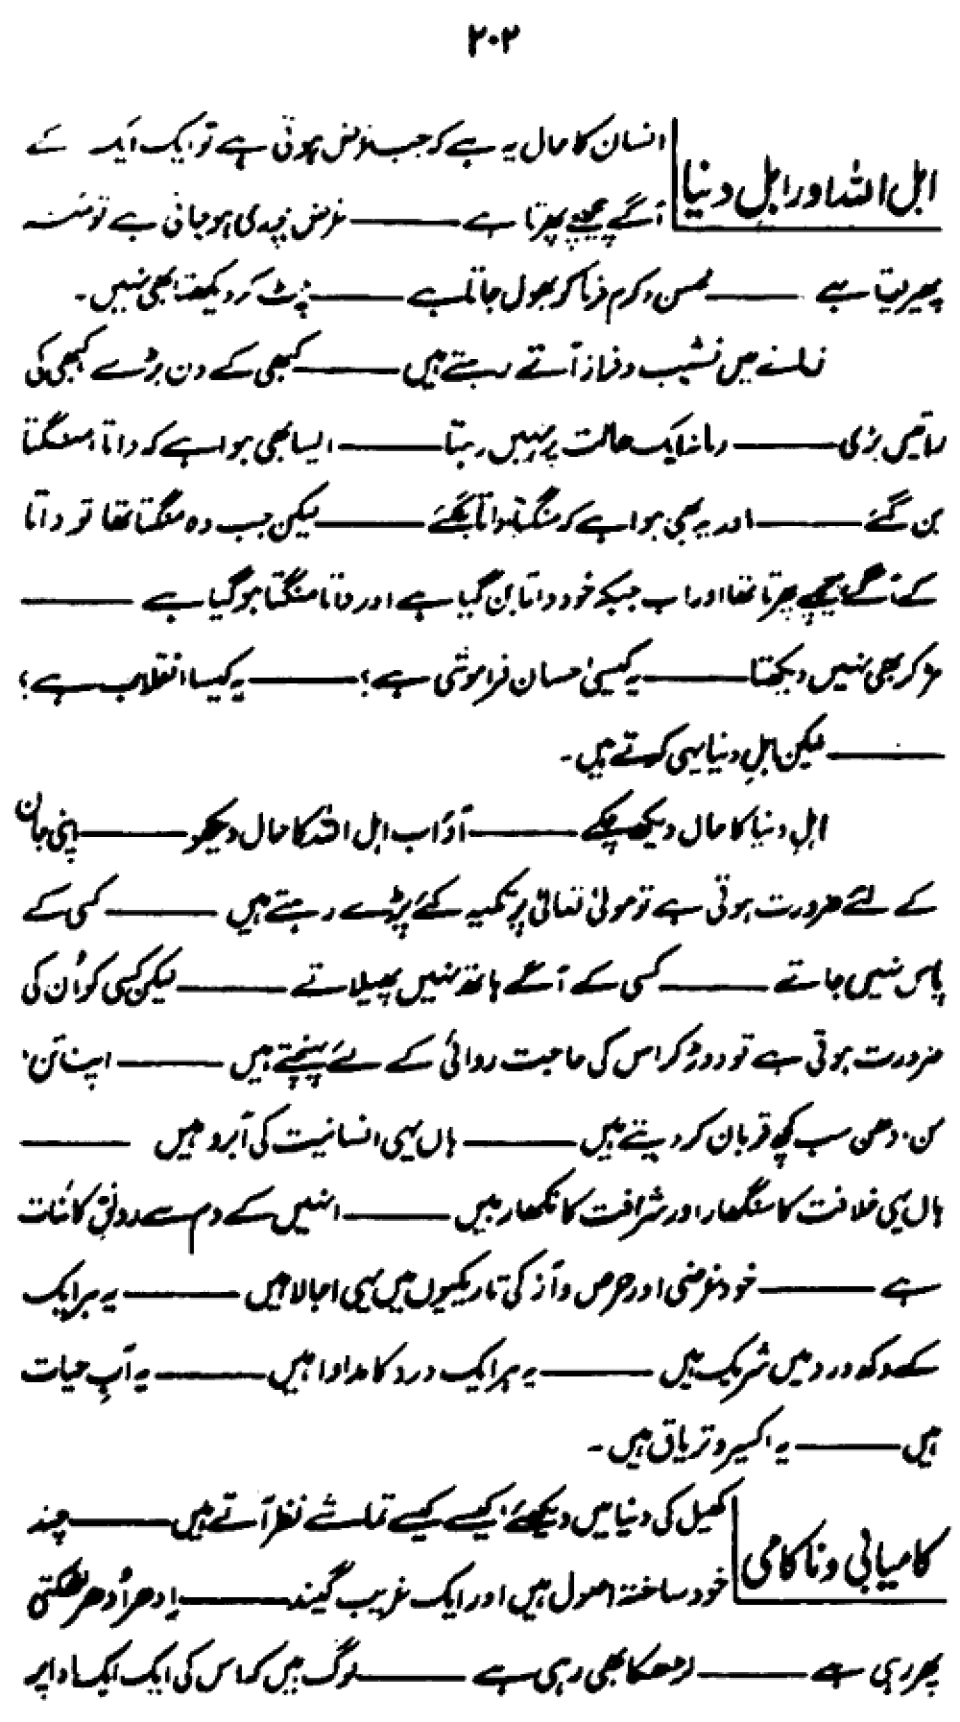 ۲۰۲
اہل اللہ اور اہلِ دنیا
انسان کا حال یہ ہے کہ جب غرض ہوتی ہے تو ایک ایک کے
آگے پیچھے پھرتا ہے ——— غرض پوری ہو جاتی ہے تو منہ
پھیر لیتا ہے ——— محسن و کرم فرما کو بھول جاتا ہے ——— پلٹ کر دیکھتا بھی نہیں۔
زمانے میں نشیب و فراز آتے رہتے ہیں ——— کبھی کے دن بڑے کبھی کی
راتیں بڑی ——— زمانہ ایک حالت پر نہیں رہتا ——— ایسا بھی ہوا ہے کہ داتا، منگتا
بن گئے ——— اور یہ بھی ہوا ہے کہ منگتا، داتا بن گئے ——— لیکن جب وہ منگتا تھا تو داتا
کے آگے پیچھے پھرتا تھا اور اب جبکہ خود داتا بن گیا ہے اور داتا منگتا ہو گیا ہے ———
مڑ کر بھی نہیں دیکھتا ——— یہ کیسی احسان فراموشی ہے؟ ——— یہ کیسا انقلاب ہے؟
——— لیکن اہلِ دنیا یہی کرتے ہیں۔
اہلِ دنیا کا حال دیکھ چکے ——— آؤ اب اہل اللہ کا حال دیکھو ——— اپنی جان
کے لئے ضرورت ہوتی ہے تو مولیٰ تعالیٰ پر تکیہ کئے پڑے رہتے ہیں ——— کسی کے
پاس نہیں جاتے ——— کسی کے آگے ہاتھ نہیں پھیلاتے ——— لیکن کسی کو اُن کی
ضرورت ہوتی ہے تو دوڑ کر اس کی حاجت روائی کے لئے پہنچتے ہیں ——— اپنا تن،
من، دھن سب کچھ قربان کر دیتے ہیں ——— ہاں یہی انسانیت کی آبرو ہیں ———
ہاں یہی خلافت کا سنگھار اور شرافت کا نکھار ہیں ——— انہیں کے دم سے رونقِ کائنات
ہے ——— خود غرضی اور حرص و آز کی تاریکیوں میں یہی اجالا ہیں ——— یہ ہر ایک
کے دکھ درد میں شریک ہیں ——— یہ ہر ایک درد کا مداوا ہیں ——— یہ آبِ حیات
ہیں ——— یہ اکسیر و تریاق ہیں۔
کامیابی و ناکامی
کھیل کی دنیا میں دیکھئے، کیسے کیسے تماشے نظر آتے ہیں ——— چند
خود ساختہ اصول ہیں اور ایک غریب گیند ——— اِدھر اُدھر لڑھکتی
پھر رہی ہے ——— لڑھکا بھی رہی ہے ——— لوگ ہیں کہ اس کی ایک ایک ادا پر